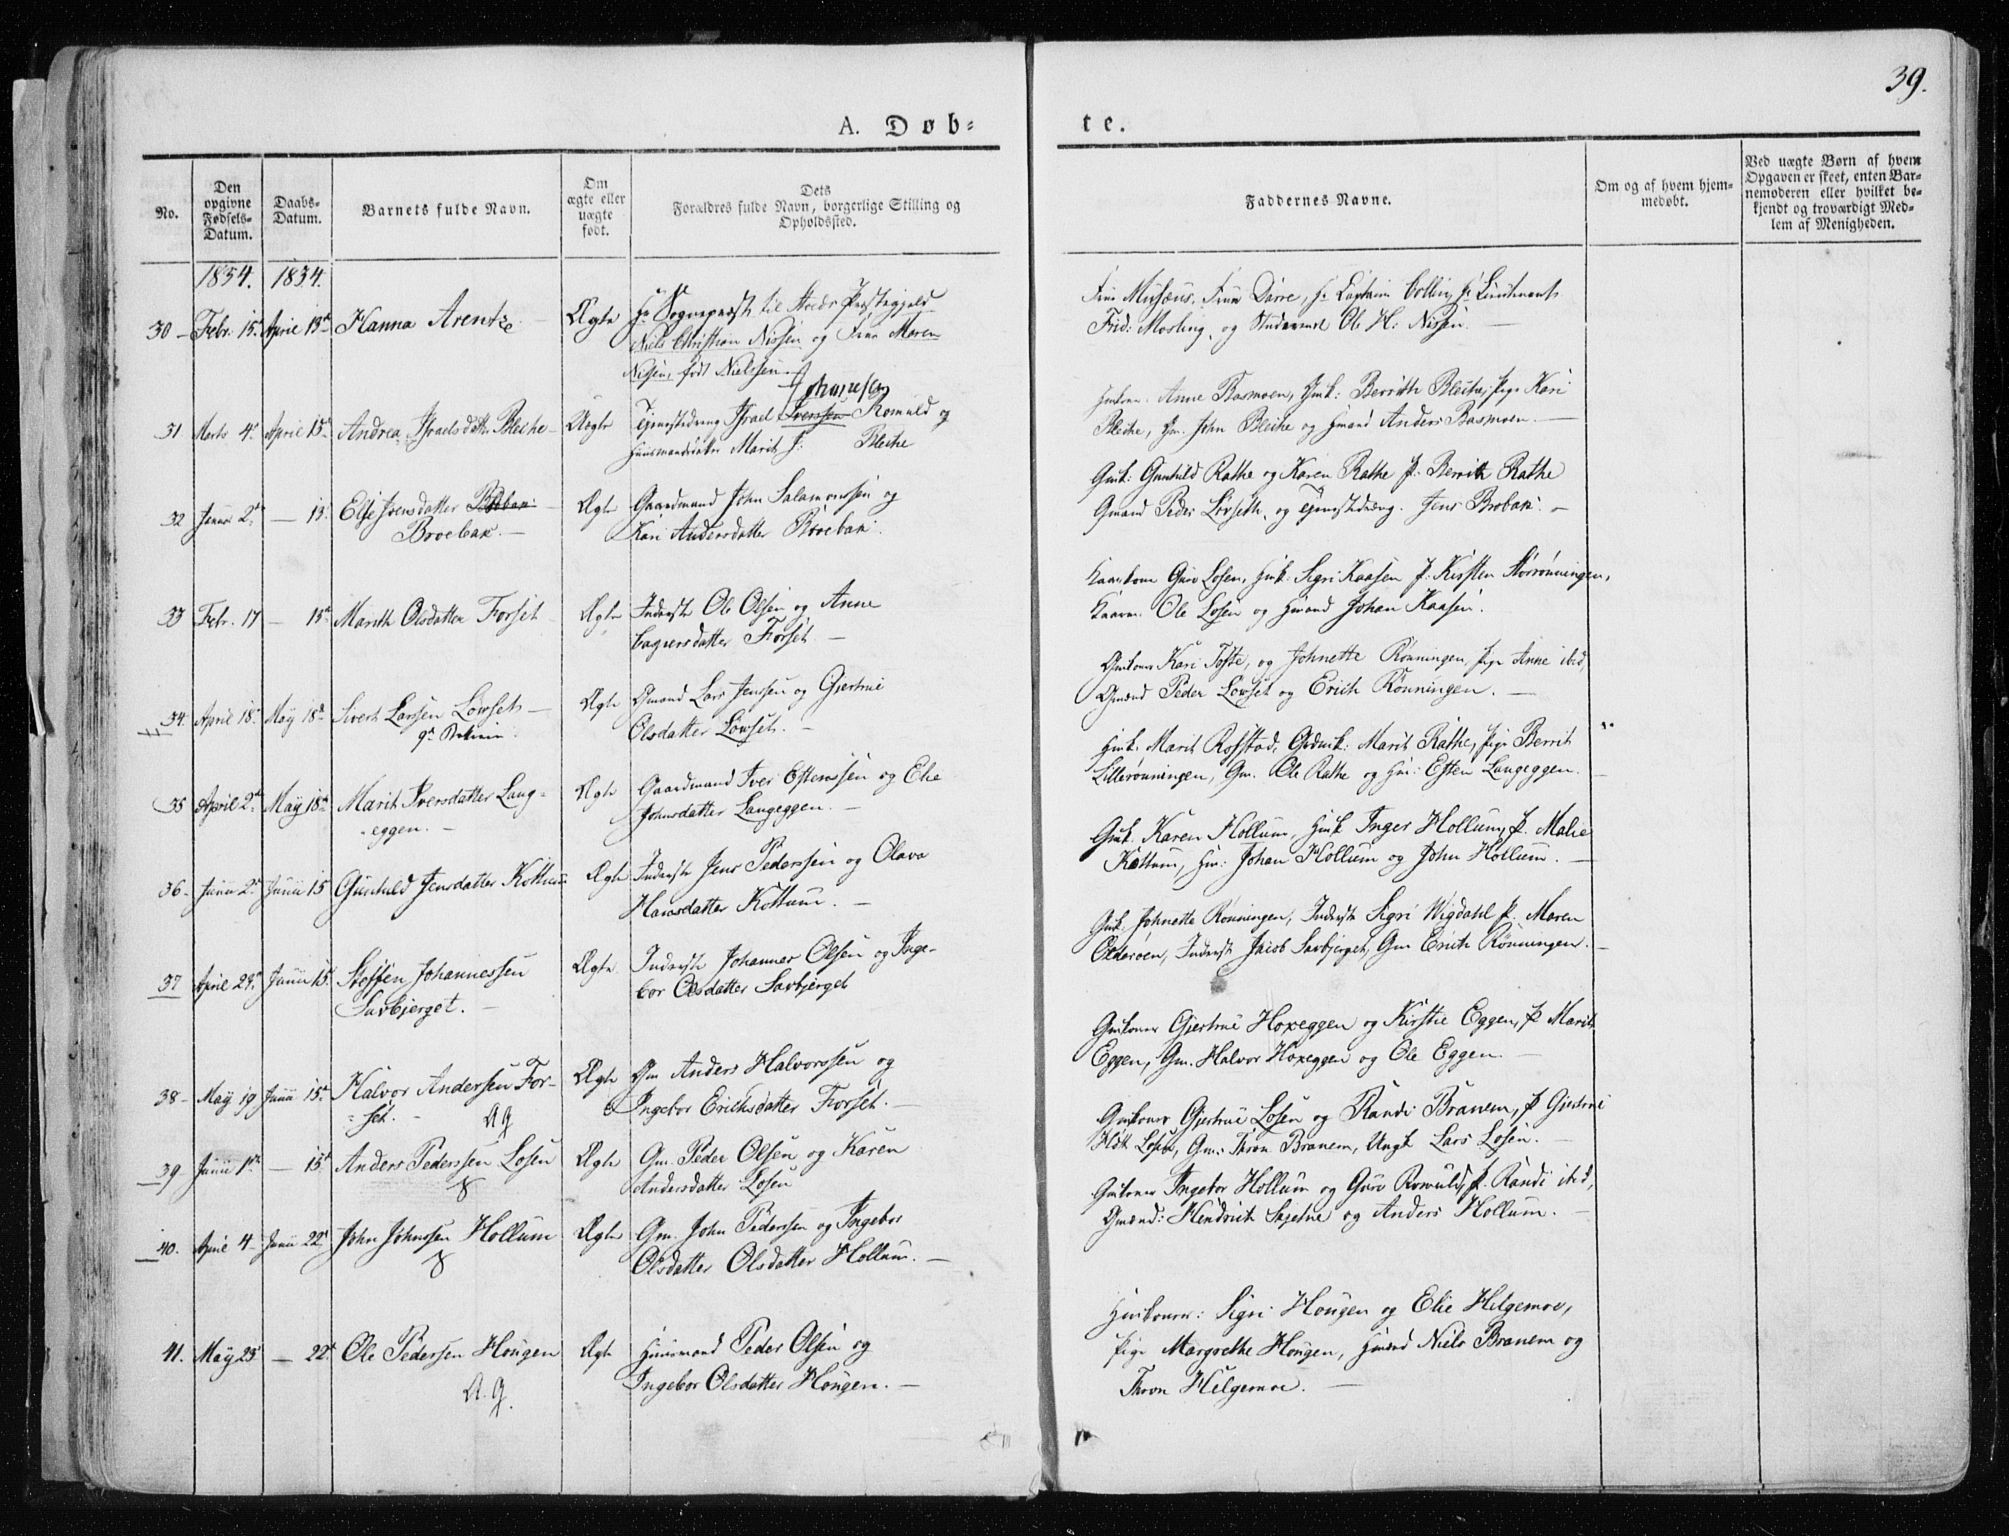 39.
A. Døb=
te.
No.
Den opgivne Fødsels-Datum.
Daabs-Datum.
Barnets fulde Navn.
Om ægte eller uægte født.
Dets Forældres fulde Navn, borgerlige Stilling og Opholdssted.
Faddernes Navne.
Om og af hvem hjem-medøbt.
Ved uægte Børn af hvem Opgaven er skeet, enten Bar-nemoderen eller hvilket be-kjendt og troværdigt Med-lem af Menigheden.
1834. 1834.
30 Febr. 15. April 13de Hanna Arentze Ægte Hr Sognepræst til Præstegjeld
Niels Christian Nissen og Frue Maren
Nissen, født Nielssen.
Frue Musæus, Frue Darre, Hr Captain Collin, Hr Lieutenant
Frid: Mosling, og Ole H: Nissen.
31 Marts 4. April 13de Andrea Israelsdatter Bleihe Uægte Tjenestedreng Israel Iverssen Johannesen Romuld og
Marit J: Bleihe
Anne Basmoen, Gmk: Berrith Bleihe, Pige Kari
Bleihe, Gm. John Bleihe og Gmand Anders Basmoen.
32 Januar 2. — 13. Elje Jonsdatter
Broebak. — Ægte Gaardmand John Salamonsen og
Kari Andersdatter Broebak.
Gmk: Gunhild Rathe og Karen Rathe P: Berrith Rathe
Gmand Peder Løvseth, og Tjenestedreng Jens Brobak. —
33 Febr. 17 — 13de Marith Olsdatter Forset Ægte Inderste Ole Olsen og Anne
Forset. —
Guro Losen, Hmk: Sigri Kaasen P: Kirsten Storrønningen,
Ole Losen og Hmand Johan Kaasen.
34. April 18. May 18de Sivert Larssen Løvset —
Ægte Gmand Lars Jenssen og Gjertrue
Olsdatter Løvset. —
Gmkoner Kari Tofte, og Johnette Rønningen, Pige Anne ibid,
Gmænd Peder Løvset og Erich Rønningen. —
35 April 2. May 18de Marit Iversdatter Lang-
eggen. — Ægte Gaardmand Iver Estenssen og Elie
Johnsdatter Langeggen. —
Hmk: Marit Rosstad, Gmk: Marit Rathe, Pige Berrit
Lillerønningen, Gm. Ole Rathe og Hm: Esten Langeggen.
36. Junii 2. Junii 15 Gunhild Jensdatter Kottum Ægte Inderste Jens Pederssen og Olava
Hansdatter Kottum. —
Gmk. Karen Hollum, Hmk Inger Hollum, P. Malie
Kottum, Hm: Johan Hollum og John Hollum. —
37 April 29. Junii 15. Steffen Johannessen
Savbjerget. — Ægte Inderste Johannes Olsen og Inge-
bor Olsdatter Savbjerget
Gmk. Johnette Rønningen, Inderste Sigri Wigdahl P. Maren
Olderøen, Inderste Jacob Savbjerget, Gm Erich Rønningen. —
38 May 19 Junii 15. Halvor Andersen For-
set. —
AG
Ægte Gm Anders Halvorssen og
Ingebor Erichsdatter Forset. —
Gmkoner Gjertrue Hoxeggen og Kirstie Eggen, P Marit
Eggen, Gm. Halvor Hoxeggen og Ole Eggen. —
39 Junii 1. — 15. Anders Pederssen Losen
Ægte Gm. Peder Olsen og Karen
Andersdatter Losen
Gmkoner Gjertrue Losen og Randi Branem, P Gjertrue
Losen, Gm: Thron Branem, Ungk Lars Losen. —
40. April 4 Junii 22. John Johnssen Hollum
Ægte Gm. John Pederssen og Ingebor
Olsdatter Olsdatter Hollum. —
Gmkoner Ingebor Hollum og Guro Romuld, P. Randi ibid,
Gmænd: Hendrich Skjetne og Anders Hollum. —
41. May 23 — 22. Ole Pederssen Hougen
A.G.
Ægte Huusmand Peder Olsen og
Ingebor Olsdatter Hougen. —
Hmkoner: Sigri Hougen og Elie Helgemoe,
Pige Margrethe Hougen, Hmænd Niels Branem og
Thron Helgemoe. —